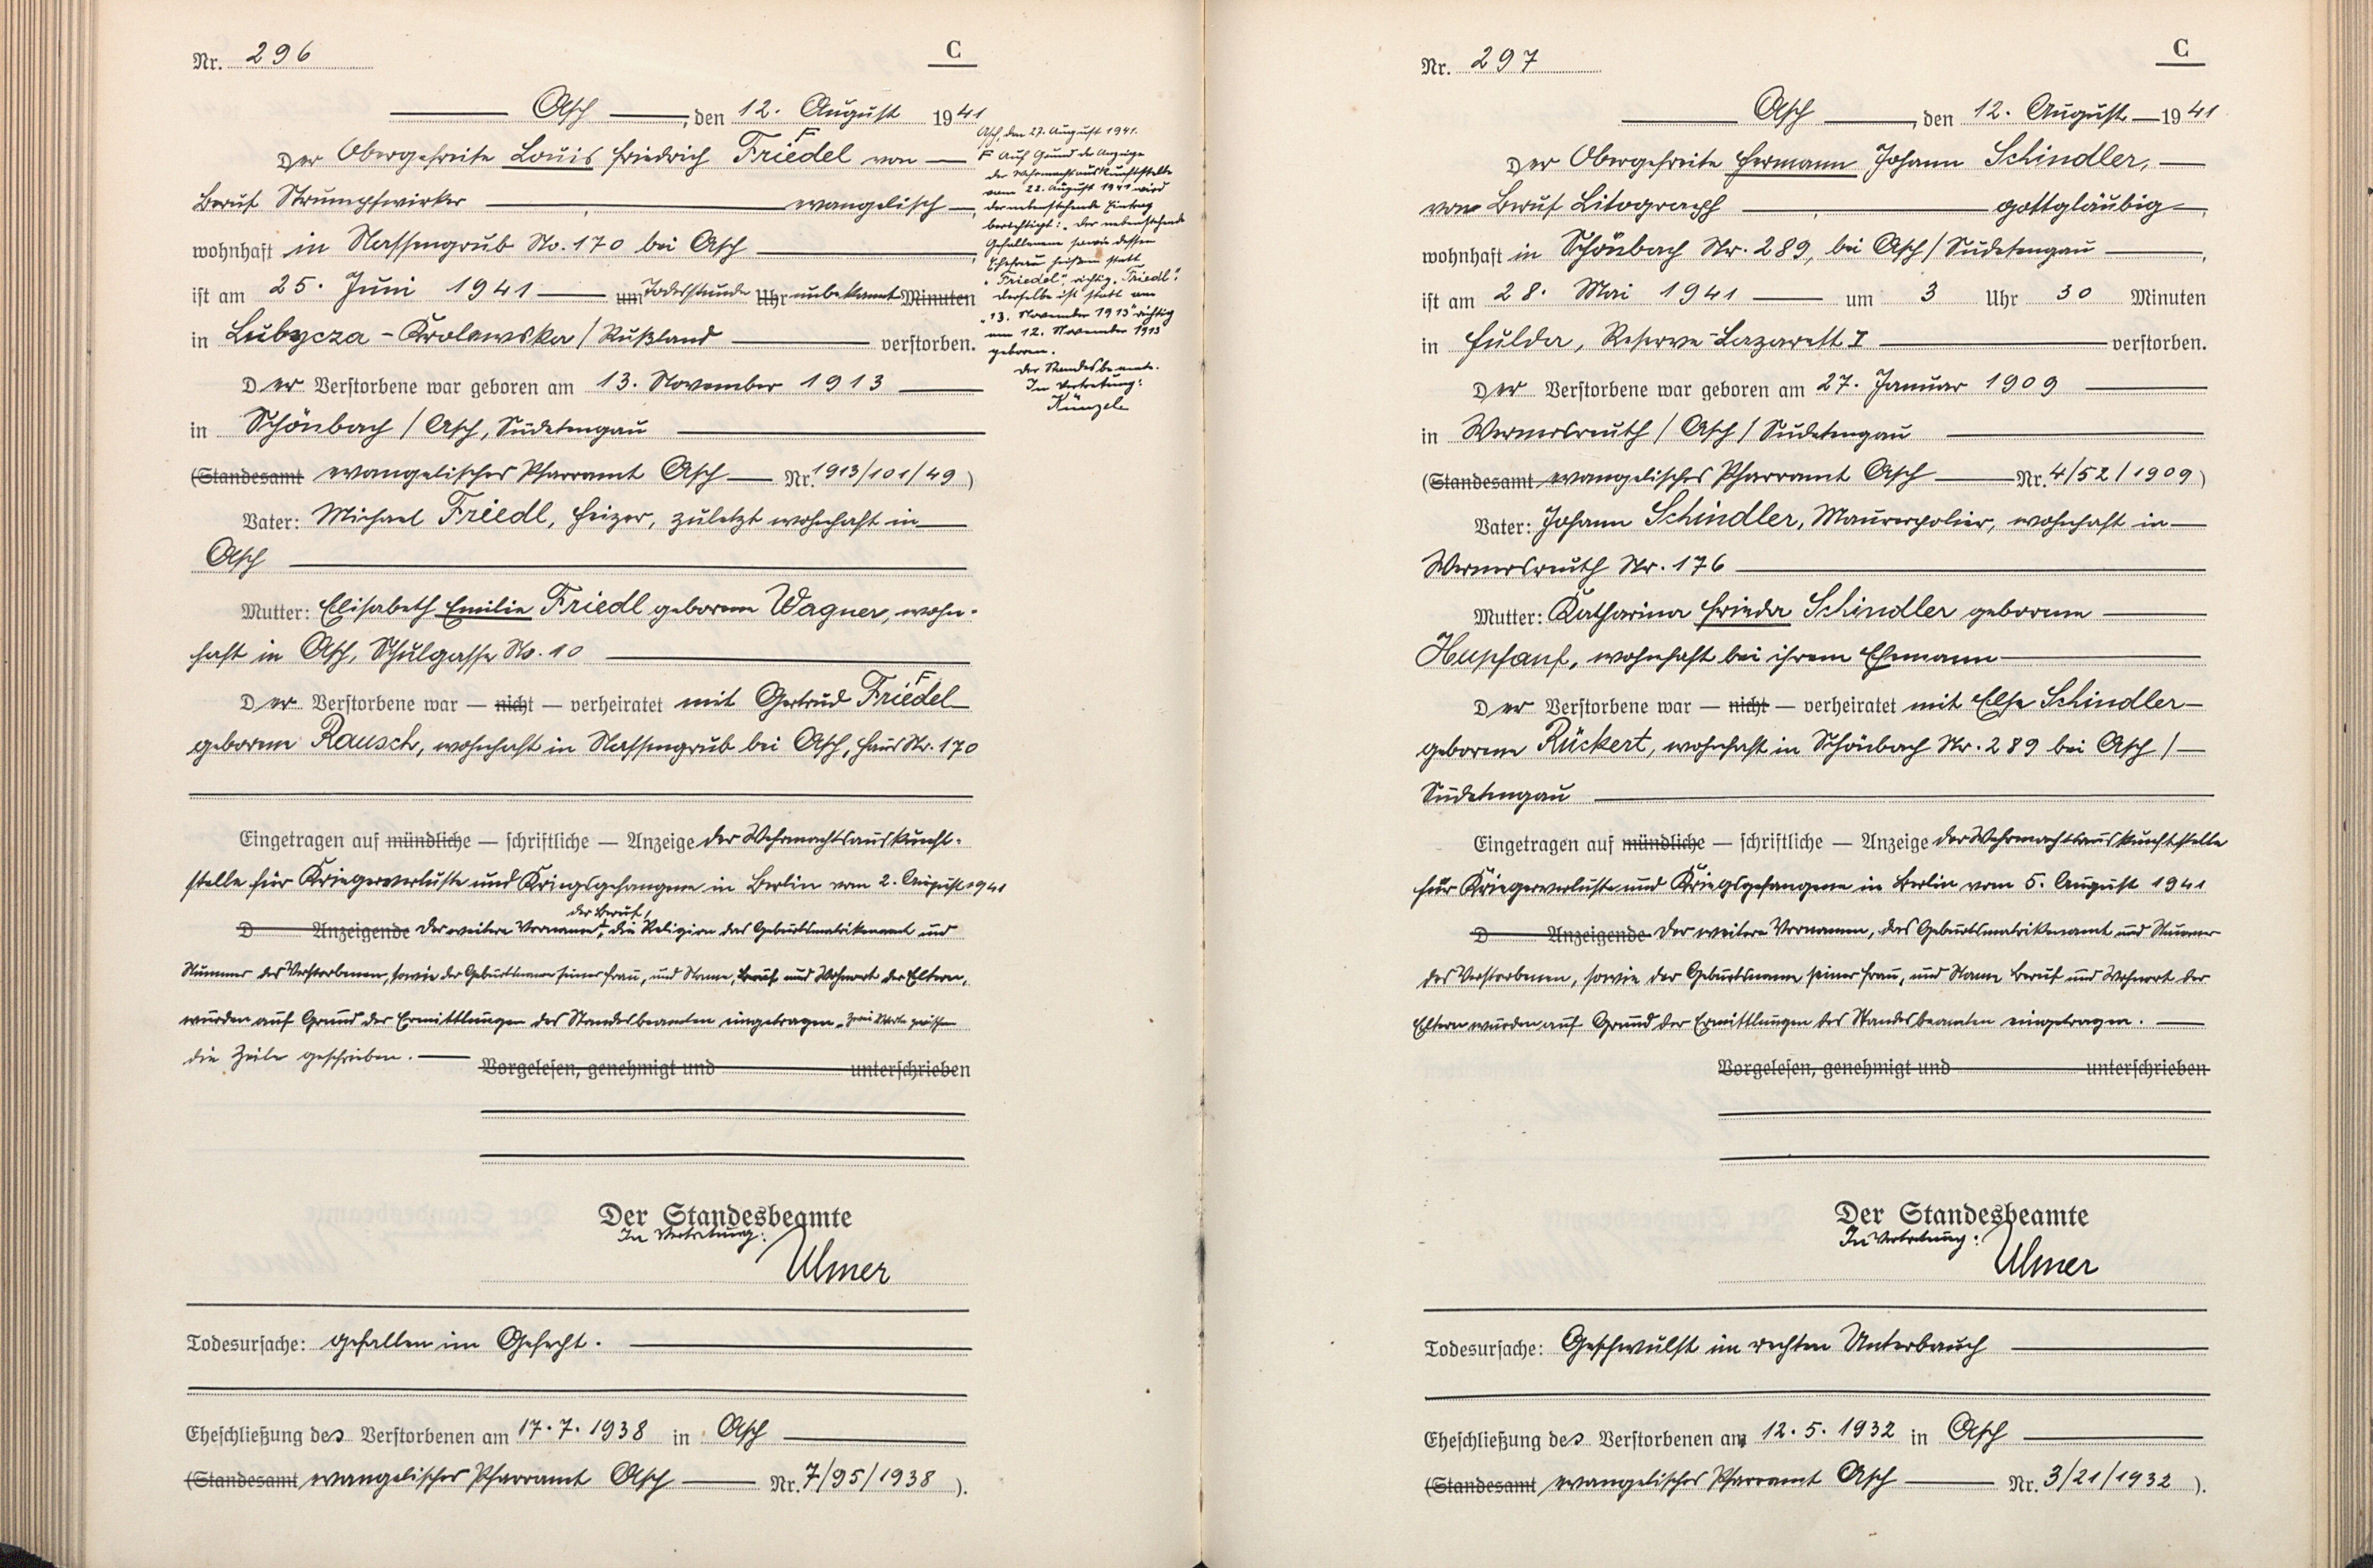 Nr. 296
C
Asch, den 12. August 1941
Der Obergefreite Louis Friedrich Friedel von
Beruf Strumpfwirker, evangelisch,
wohnhaft in Nassengrub No. 170 bei Asch,
ist am 25. Juni 1941 um Todesstunde Uhr unbekannt Minuten
in Lubycza-Krolawska / Rußland verstorben.
Der Verstorbene war geboren am 13. November 1913
in Schönbach / Asch, Sudetengau
(Standesamt evangelisches Pfarramt Asch Nr. 1913/101/49)
Vater: Michael Friedl, Heizer, zuletzt wohnhaft in
Asch
Mutter: Elisabeth Emilie Friedl geborene Wagner, wohn-
haft in Asch, Schulgasse No. 10
Der Verstorbene war — nicht — verheiratet mit Gertrud Friedel
geborene Rausch, wohnhaft in Nassengrub bei Asch, Haus Nr. 170
Eingetragen auf mündliche — schriftliche — Anzeige der Wehrmachtsauskunft-
stelle für Kriegerverluste und Kriegsgefangene in Berlin vom 2. August 1941
der Beruf,
D Anzeigende Der weitere Vorname, die Religion das Geburtsmatrikenamt und
Nummer des Verstorbenen, sowie der Geburtsname seiner Frau, und Name, Beruf und Wohnort der Eltern,
wurden auf Grund der Ermittlungen des Standesbeamten eingetragen. Zwei Worte zwischen
die Zeile geschrieben.
Vorgelesen, genehmigt und unterschrieben
Der Standesbeamte
In Vertretung:
Ulmer
Todesursache: gefallen im Gefecht.
Eheschließung des Verstorbenen am 17.7.1938 in Asch
(Standesamt evangelisches Pfarramt Asch Nr. 7/95/1938).
Asch, den 27. August 1941.
F Auf Grund der Anzeige
der Wehrmachtauskunftstelle
vom 22. August 1941 wird
der nebenstehende Eintrag
berichtigt: „Der nebenstehende
Gefallene sowie dessen
Ehefrau heißen statt
„Friedel“, richtig „Friedl“.
Derselbe ist statt am
„13. November 1913“ richtig
am 12. November 1913
geboren.
Der Standesbeamte.
In Vertretung:
Künzel
Nr. 297
C
Asch, den 12. August 1941
Der Obergefreite Hermann Johann Schindler,
von Beruf Litograpf, gottgläubig,
wohnhaft in Schönbach Nr. 289, bei Asch / Sudetengau,
ist am 28. Mai 1941 um 3 Uhr 30 Minuten
in Fulda, Reserve-Lazarett I verstorben.
Der Verstorbene war geboren am 27. Januar 1909
in Wernersreuth / Asch / Sudetengau
(Standesamt evangelisches Pfarramt Asch Nr. 4/52/1909)
Vater: Johann Schindler, Maurerpolier, wohnhaft in
Wernersreuth Nr. 176
Mutter: Katharina Frieda Schindler geborene
Hupfauf, wohnhaft bei ihrem Ehemann
Der Verstorbene war — nicht — verheiratet mit Else Schindler
geborene Rückert, wohnhaft in Schönbach Nr. 289 bei Asch /
Sudetengau
Eingetragen auf mündliche — schriftliche — Anzeige der Wehrmachtsauskunftstelle
für Kriegerverluste und Kriegsgefangene in Berlin vom 5. August 1941
D Anzeigende Der weitere Vornamen, das Geburtsmatrikenamt und Nummer
des Verstorbenen, sowie der Geburtsname seiner Frau, und Name Beruf und Wohnort der
Eltern wurden auf Grund der Ermittlungen des Standesbeamten eingetragen.
Vorgelesen, genehmigt und unterschrieben
Der Standesbeamte
In Vertretung:
Ulmer
Todesursache: Geschwulst im rechten Unterbauch
Eheschließung des Verstorbenen am 12.5.1932 in Asch
(Standesamt evangelisches Pfarramt Asch Nr. 3/21/1932).